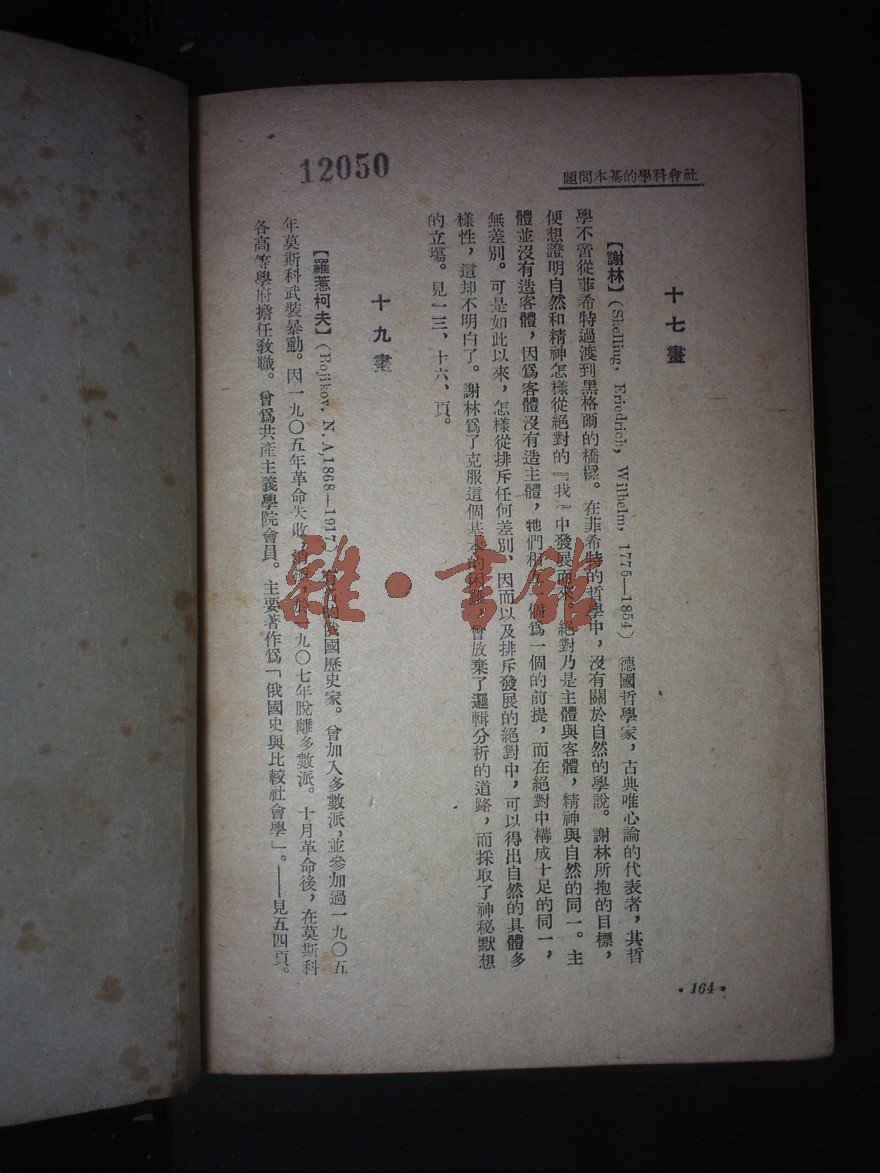 12050
社會科學的基本問題
十七畫
【謝林】(Shelling, Eriedrich, Wilhelm, 1775—1854) 德國哲學家，古典唯心論的代表者，其哲
學不啻從菲希特過渡到黑格爾的橋樑。在菲希特的哲學中，沒有關於自然的學說。謝林所抱的目標，
便想證明自然和精神怎樣從絕對的『我』中發展而來 絕對乃是主體與客體，精神與自然的同一。主
體並沒有造客體，因爲客體沒有造主體，牠們相 個爲一個的前提，而在絕對中構成十足的同一，
無差別。可是如此以來，怎樣從排斥任何差別，因而以及排斥發展的絕對中，可以得出自然的具體多
樣性，這却不明白了。謝林爲了克服這個基本的困難，會放棄了邏輯分析的道路，而採取了神秘默想
的立塲。見一三、十六、頁。
十九畫
【羅惹柯夫】(Rojikov. N.A,1868—1917) 有名的俄國歷史家。曾加入多數派，並參加過一九〇五
年莫斯科武裝暴動。因一九〇五年革命失敗， 於一九〇七年脫離多數派。十月革命後，在莫斯科
各高等學府擔任敎職。曾爲共產主義學院會員。主要著作爲「俄國史與比較社會學」。——見五四頁。
•164•
雜·書館